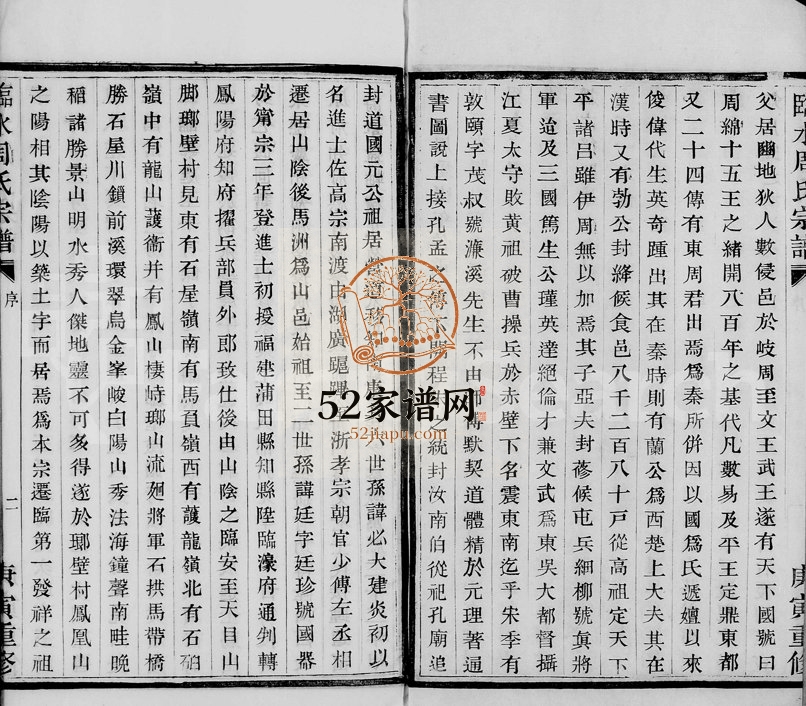 臨水周氏宗譜
庚寅重修
父居豳地狄人數侵邑於岐周至文王武王遂有天下國號曰
周綿十五王之緒開八百年之基代凡數易及平王定鼎東都
又二十四傳有東周君出焉爲秦所併因以國爲氏遞嬗以來
俊偉代生英奇踵出其在秦時則有蘭公爲西楚上大夫其在
漢時又有勃公封絳候食邑八千二百八十戶從高祖定天下
平諸呂雖伊周無以加焉其子亞夫封蓚候屯兵細柳號眞將
軍迨及三國篤生公瑾英達絕倫才兼文武爲東吳大都督攝
江夏太守敗黃祖破曹操兵於赤壁下名震東南迄乎宋季有
敦頤字茂叔號濂溪先生不由師傳默契道體精於元理著通
書圖說上接孔孟之傳下開程 之統封汝南伯從祀孔廟追
封道國元公祖居營道 世孫諱必大建炎初以
名進士佐高宗南渡由湖廣 浙孝宗朝官少傅左丞相
遷居山陰後馬洲爲山邑始祖至二世孫諱廷字廷珍號國器
於甯宗三年登進士初授福建蒲田縣知縣陞臨濠府通判轉
鳳陽府知府擢兵部員外郎致仕後由山陰之臨安至天目山
脚瑯壁村見東有石屋嶺南有馬頁嶺西有護龍嶺北有石硈
嶺中有龍山護衞并有鳳山棲峙瑯山流廻將軍石拱馬帶橋
勝石屋川鎖前溪環翠烏金峯峻白陽山秀法海鐘聲南畦晚
稻諸勝景山明水秀人傑地靈不可多得遂於瑯壁村鳳凰山
之陽相其陰陽以築土字而居焉爲本宗遷臨第一發祥之祖
臨水周氏宗譜
序
二
庚寅重修
52家谱网
52jiapu.com